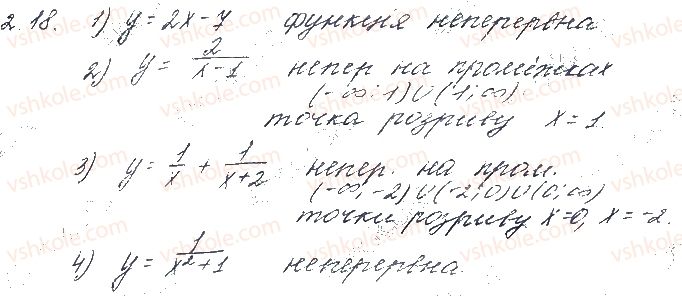 2.18. 1) y = 2x - 7 функція неперервна
2) y = 2/(x - 1) непер. на проміжках
(-∞; 1) ∪ (1; ∞)
точка розриву x = 1.
3) y = 1/x + 1/(x + 2) непер. на пром.
(-∞; -2) ∪ (-2; 0) ∪ (0; ∞)
точки розриву x = 0, x = -2.
4) y = 1/(x² + 1) неперервна.